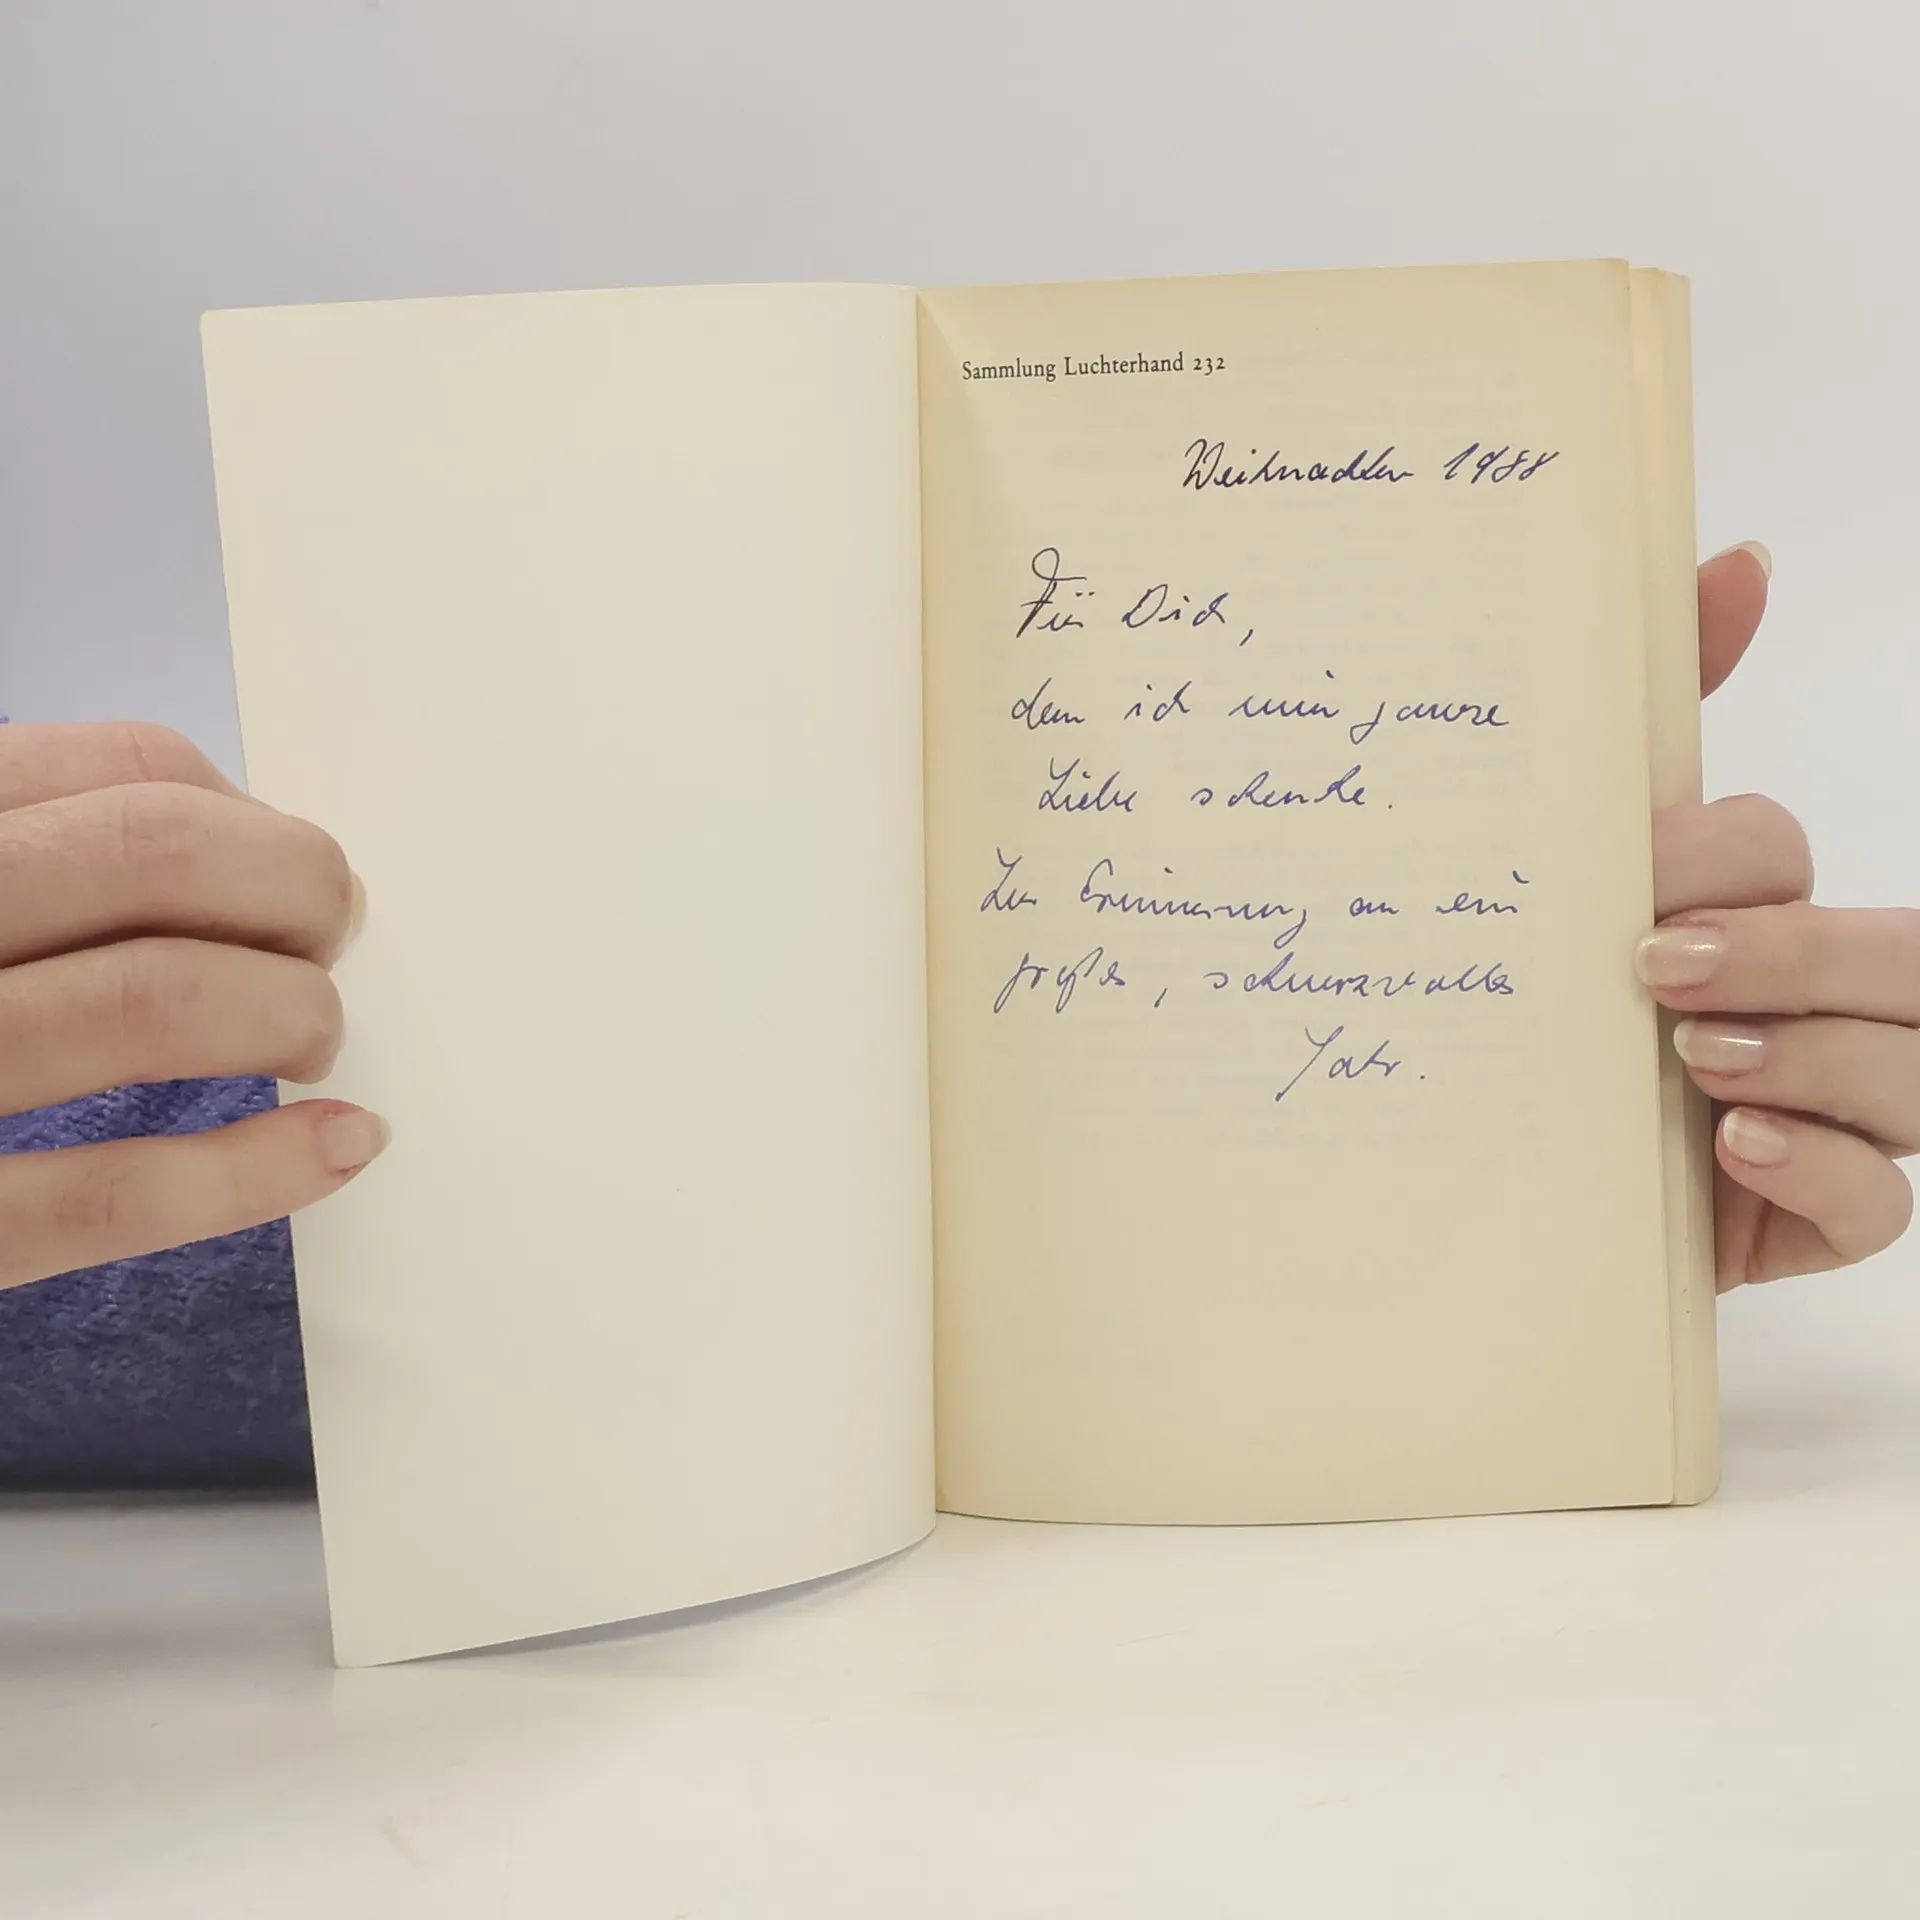 Sammlung Luchterhand 232
Weihnachten 1988
Für Dich,
dem ich meine ganze
Liebe schenke.
Zur Erinnerung an ein
großes, schmerzvolles
Jahr.